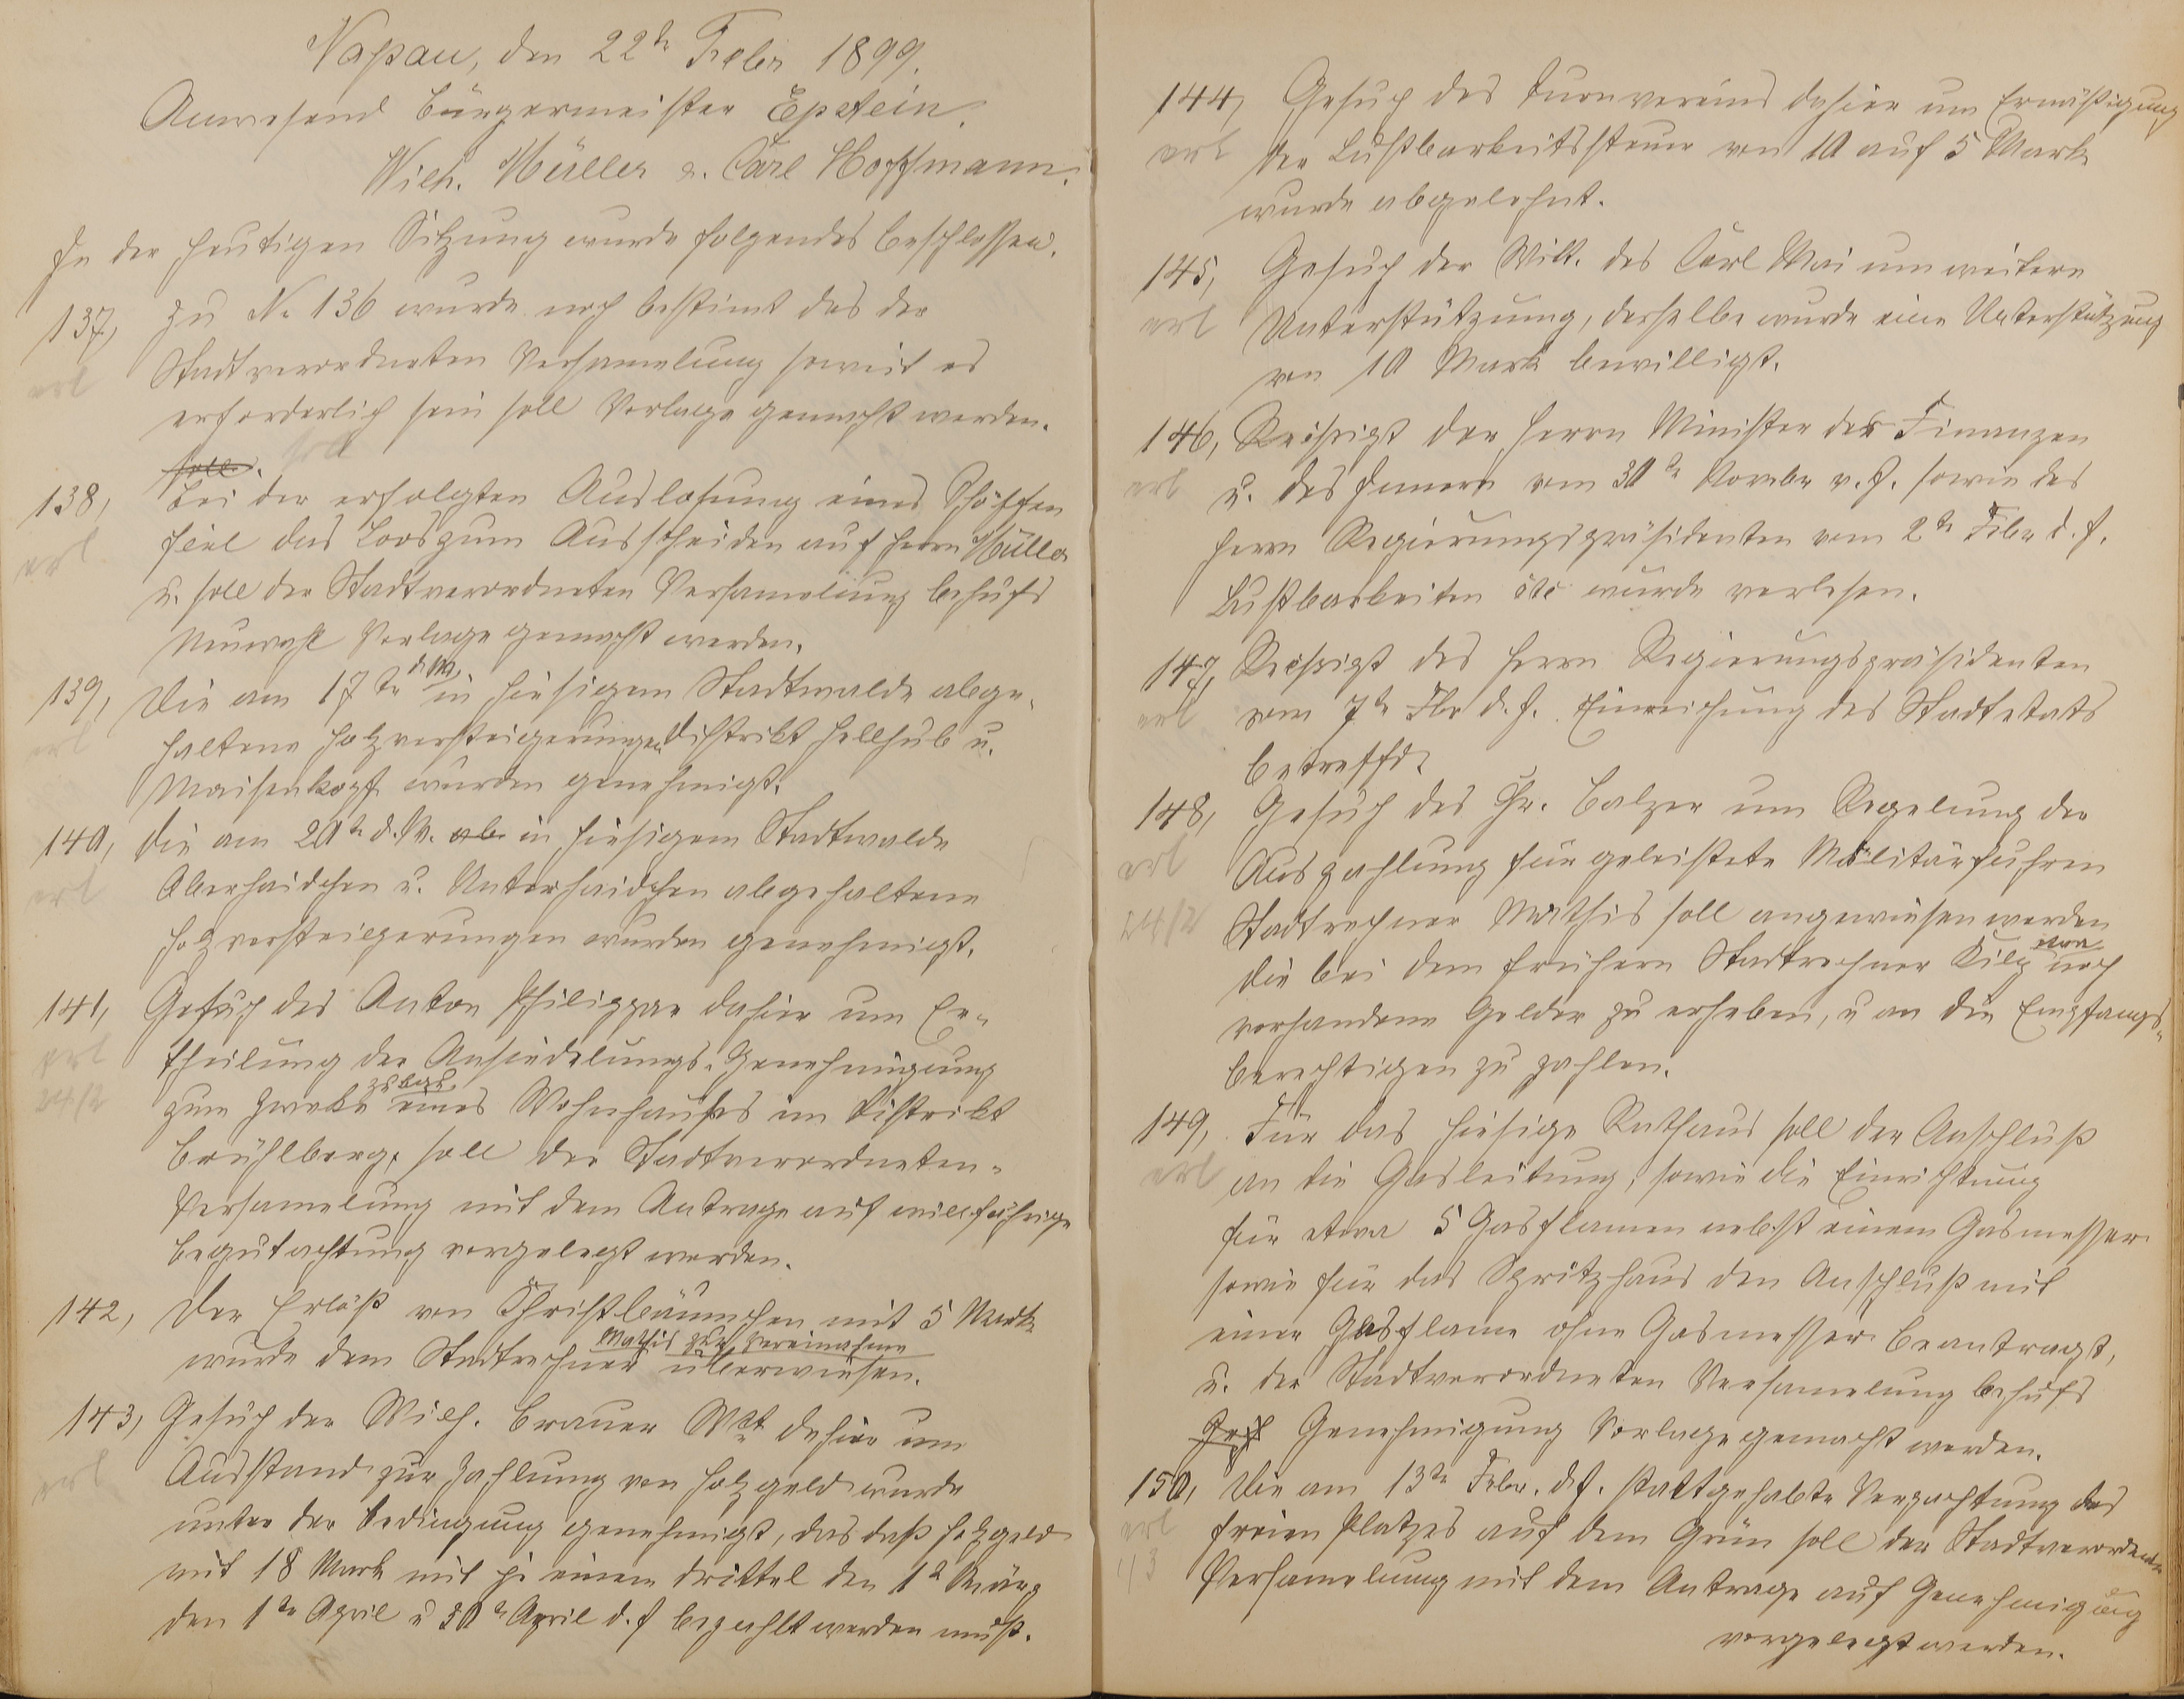 Naßau, den 22te Febr 1899.
Anwesend Bürgermeister Epstein.
Wilh. Müller u. Carl Hoffmann.
In der heutigen Sitzung wurde folgendes beschlossen.
137, Zu No 136 wurde noch bestimt das der
Stadtverordneten Versamelung soweit es
erl
erforderlich sein soll Vorlage gemacht werden.
soll. soll
138, Bei der erfolgten Auslosung eines Schöffen
erl. fiel das Loos zum Ausscheiden auf Herrn Müller
u. soll der Stadtverordneten Versamelung behufs
Neuwahl Vorlage gemacht werden.
d. M.
139, Die am 17te in hiesigem Stadtwalde abge-
erl haltene Holzversteigerungen Distrikt Hellhub u.
Maisenkopf wurden genehmigt.
140, Die am 20te d. M. ab in hiesigem Stadtwalde
erl Oberhaidchen u. Unterhaidchen abgehaltene
Holzversteigerungen wurden genehmigt.
141, Gesuch des Anton Philippar dahier um Er-
erl theilung der Ansiedelungs-Genehmigung
zu bau
24/2 zum Zwecke eines Wohnhauses im Distrikt
Brühlberg, soll der Stadtverordneten-
Versamelung mit dem Antrage auf willfährige
Begutachtung vorgelegt werden.
142, Der Erlöß von Christbäumchen mit 5 Mark
Mathis zur Vereinahme
wurde dem Stadtrechner überwiesen.
143, Gesuch der Wilh. Brauer Wtt dahier um
erl Ausstand zur Zahlung von Holzgeld wurde
unter der Bedingung genehmigt, das daß Holzgeld
mit 18 Mark mit je einem Drittel den 1te März
den 1te April u 30te April d. J bezahlt werden muß.
144, Gesuch des Turnvereins dahier um Ermäßigung
erl der Lustbarkeitssteuer von 10 auf 5 Mark
wurde abgelehnt.
145, Gesuch der Witt. des Carl Mai um weitere
erl Unterstützung, derselbe wurde eine Unterstützung
von 10 Mark bewilligt.
146, Rescript der Herrn Minister der Finanzen
erl u. des Innern vom 30te Novbr v. J. sowie des
Herrn Regierungspräsidenten vom 2te Febr d. J.
Lustbarkeiten etc wurde verlesen.
147, Rescript des Herrn Regierungspräsidenten
erl vom 7te Fbr d. J. Einreichung des Stadtetats
betreffd.
148, Gesuch des Chr. Balzer um Regelung der
erl Auszahlung für geleistete Militärfuhren
24/2 Stadtrechner Mathis soll angewiesen werden
etwa
die bei dem frühern Stadtrechner Kilz noch
vorhandene Gelder zu erheben, u an die Empfangs-
berechtigen zu zahlen.
149, Für das hiesige Rathaus soll der Anschluß
erl an die Gasleitung, sowie die Einrichtung
für etwa 5 Gasflamen nebst einem Gasmesser
sowie für das Spritzhaus den Anschluß mit
einer Gasflame ohne Gasmesser beantragt,
u. der Stadtverordneten Versamelung behufs
Genehmigung Vorlage gemacht werden.
150, Die am 13te Febr. d J. stattgehabte Verpachtung des
erl freien Platzes auf dem Grün soll der Stadtverordneten
1/3 Versamelung mit dem Antrage auf Genehmigung
vorgelegt werden.